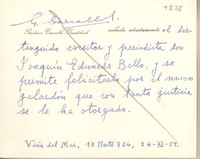 1828
G. Carvallo S.
Gustavo Carvallo saluda atentamente al dis-
tinguido escritor y periodista don
Joaquín Edwards Bello, y se
permite felicitarlo por el nuevo
galardón que con tanta justicia
se le ha otorgado.
Viña del Mar, 10 Norte 724, 24-XI-54.